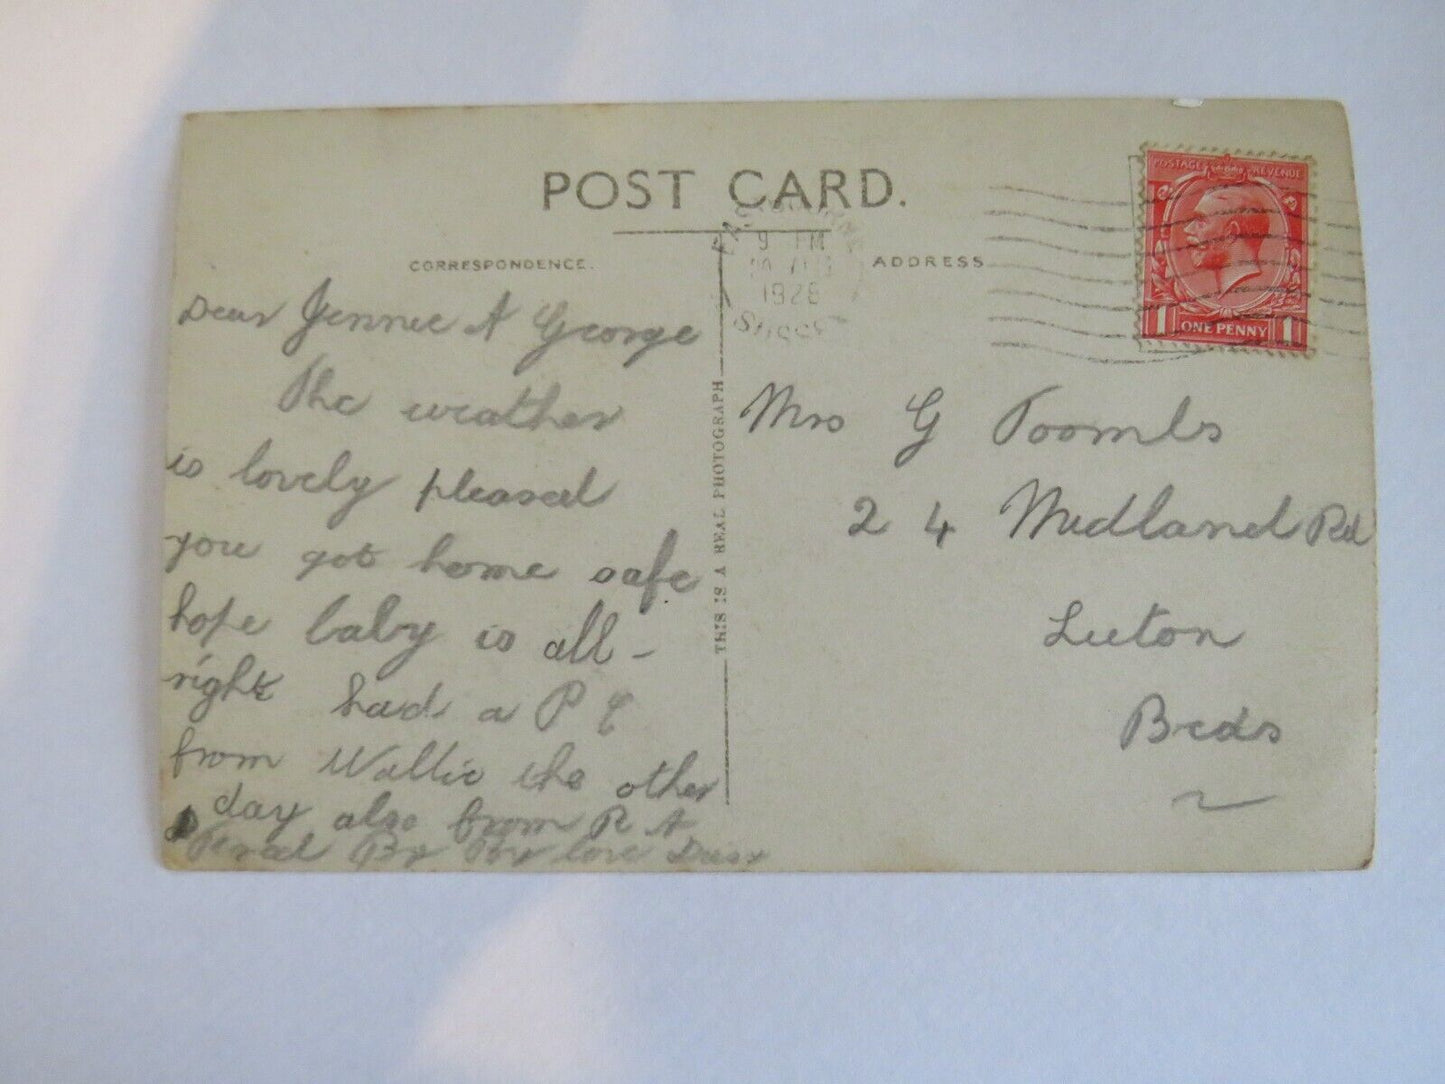 POST CARD.
CORRESPONDENCE.
ADDRESS
EASTBOURNE
9 PM
1928
SUSSEX
POSTAGE REVENUE
1 ONE PENNY 1
THIS IS A REAL PHOTOGRAPH
Dear Jennie & George
The weather
is lovely pleased
you got home safe
hope baby is all-
right had a P C
from Wallie the other
day also from R &
Pearl By By love
Mrs G Toombs
24 Midland Rd
Luton
Beds